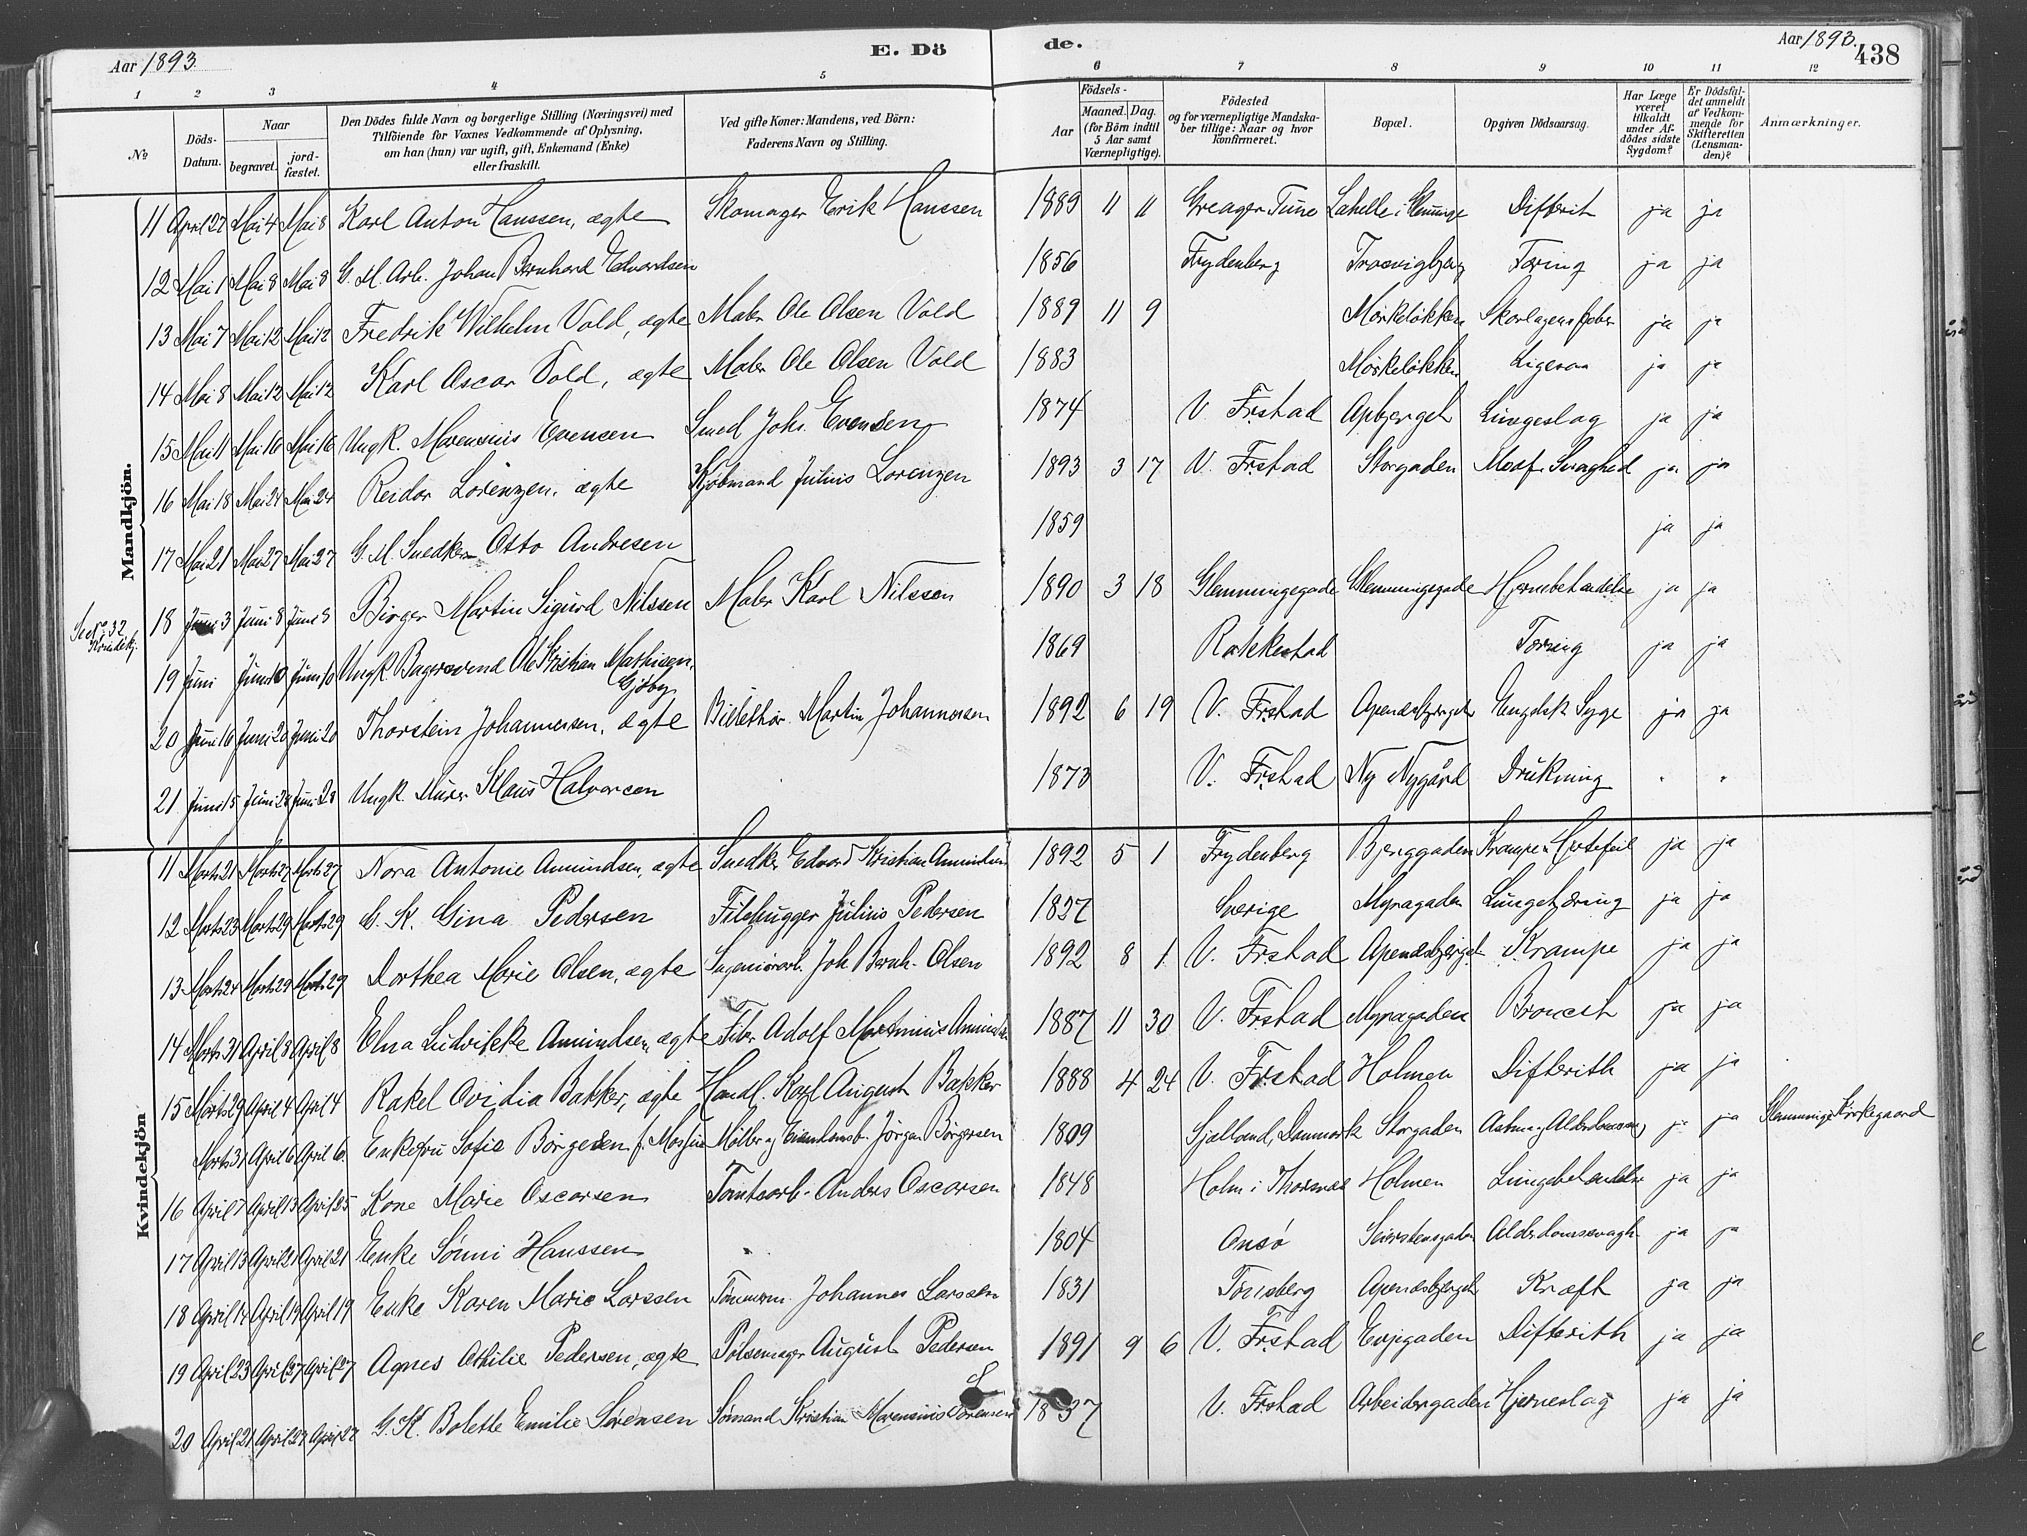 Aar 1893.
E. Dö de.
Aar 1893.
438
1 2 3 4 5 6 7 8 9 10 11 12
№
Döds-Datum.
Naar begravet. jordfæstet.
Den Dödes fulde Navn og borgerlige Stilling (Næringsvei) med Tilföiende for Voxnes Vedkommende af Oplysning, om han (hun) var ugift, gift, Enkemand (Enke) eller fraskilt.
Ved gifte Koner: Mandens, ved Börn: Faderens Navn og Stilling.
Födsels-
Aar Maaned. Dag. (for Börn indtil 5 Aar samt Værnepligtige).
Födested og for værnepligtige Mandskaber tillige: Naar og hvor konfirmeret.
Bopæl.
Opgiven Dödsaarsag.
Har Læge været tilkaldt under Afdödes sidste Sygdom?
Er Dödsfaldet anmeldt af Vedkommende for Skifteretten (Lensmanden)?
Anmærkninger.
Mandkjön.
11 April 27 Mai 4 Mai 8 Karl Anton Hanssen, ægte Skomager Erik Hanssen 1889 11 11 Greager Tune Lahelle i Glemminge Difterit ja ja
12 Mai 1 Mai 8 Mai 8 G. M. Arb. Johan Bernhard Edvardsen 1856 Frydenberg Trosvigbjerg Tæring ja ja
13 Mai 7 Mai 12 Mai 12 Fredrik Wilhelm Vold, ægte Maler Ole Olsen Vold 1889 11 9 Mørkeløkken Skarlagensfeber ja ja
14 Mai 8 Mai 12 Mai 12 Karl Oscar Vold, ægte Maler Ole Olsen Vold 1883 Mørkeløkken Ligesaa ja ja
15 Mai 11 Mai 16 Mai 16 Ungk. Marensius Evensen Smed Johs. Evensen 1874 V. Frstad Apbjerget Lungeslag ja ja
16 Mai 18 Mai 24 Mai 24 Reidar Lorenzen, ægte Kjøbmand Julius Lorenzen 1893 3 17 V. Frstad Storgaden Medf. Svaghed ja ja
17 Mai 21 Mai 27 Mai 27 G. M. Snedker Otto Andresen 1859 ja ja
18 Juni 3 Juni 8 Juni 8 Birger Martin Sigurd Nilssen Maler Karl Nilssen 1890 3 18 Glemmingegade Glemmingegade Hjernebetændelse ja ja
Se No. 32 Kvindekj.
19 Juni Juni 10 Juni 10 Ungk. Bagersvend Ole Kristian Mathisen Gjøby 1869 Rakkestad Tæring ja ja
20 Juni 16 Juni 20 Juni 20 Thorstein Johannessen, ægte Billethør. Martin Johannessen 1892 6 19 V. Frstad Apenæsbjerget Engelsk Syge ja ja
21 Juni 15 Juni 28 Juni 28 Ungk. Murer Klaus Halvorsen 1873 V. Frstad Ny Nygård Drukning " "
Kvindekjön
11 Marts 21 Marts 27 Marts 27 Nora Antonie Amundsen, ægte Snedker Edvard Kristian Amundsen 1892 5 1 Frydenberg Bjerggaden Krampe Hjertefeil ja ja
12 Marts 23 Marts 29 Marts 29 G. K. Gina Pedersen Filehugger Julius Pedersen 1827 Sverige Myragaden Lungetæring ja ja
13 Marts 24 Marts 29 Marts 29 Dorthea Marie Olsen, ægte Joh Bernh. Olsen 1892 8 1 V. Frstad Apenæsbjerget Krampe ja ja
14 Marts 31 April 8 April 8 Elna Ludvikke Amundsen, ægte Fbr. Adolf Marthinius Amundsen 1887 11 30 V. Frstad Myragaden ja ja
15 Marts 29 April 4 April 4 Rakel Ovidia Bakker, ægte Handl. Karl August Bakker 1888 4 24 V. Frstad Holmen Difterith ja ja
Marts 31 April 6 April 6. Enkefru Sofie Börgesen f. Møller og Eiendomsb. Jörgen Börgesen 1809 Sjælland, Danmark Storgaden Astma, Alderdomssv. ja ja Glemminge Kirkegaard
16 April 7 April 13 April 25 Kone Marie Oscarsen Tomtearb. Anders Oscarsen 1848 Holm i Thorsnæs Holmen Lungebetændelse ja ja
17 April 13 April 21 April 21 Enke Sönni Hanssen 1804 Onsö Seierstensgaden Alderdomssvagh. ja ja
18 April 14 April 19 April 19 Enke Karen Marie Larssen Tömmerm. Johannes Larssen 1831 Tönsberg Apenæsbjerget Kræft ja ja
19 April 23 April 27 April 27 Agnes Othilie Pedersen, ægte Pölsemager August Pedersen 1891 9 6 V. Frstad Evjegaden Difterith ja ja
20 April 21 April 27 April 27 G. K. Bolette Emilie Sörensen Sömand Kristian Marensinius Sörensen 1837 V. Frstad Arbeidergaden Hjerneslag ja ja